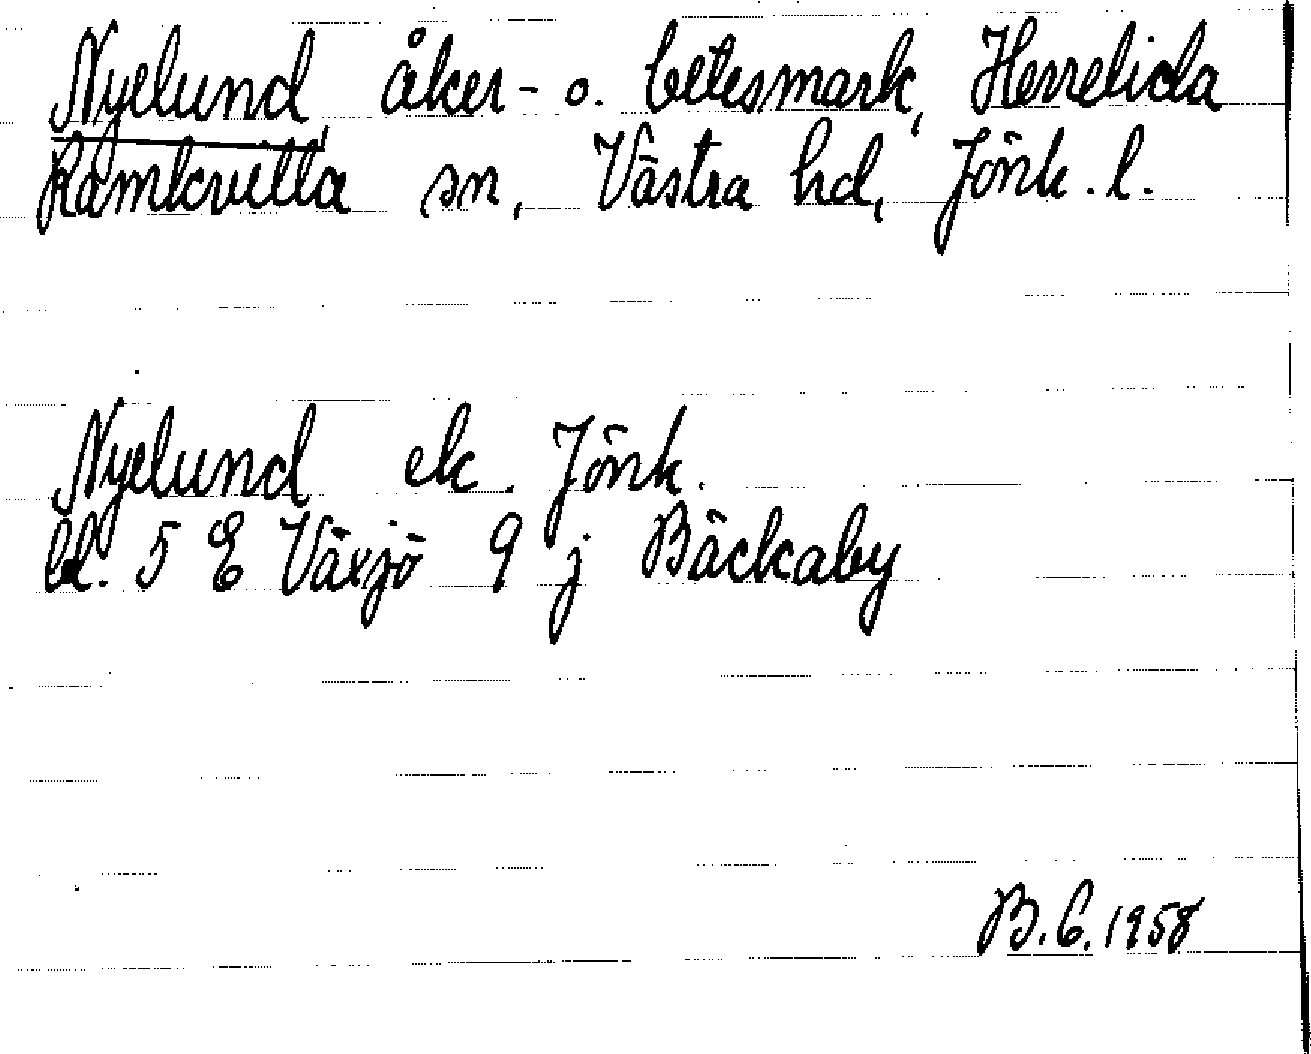 Nyelund, åker- o. betesmark, Herrelida
Ramkvilla sn, Västra hd, Jönk. l.
Nyelund ek. Jönk.
bl. 5 E Växjö 9 j Bäckaby
B.G. 1958